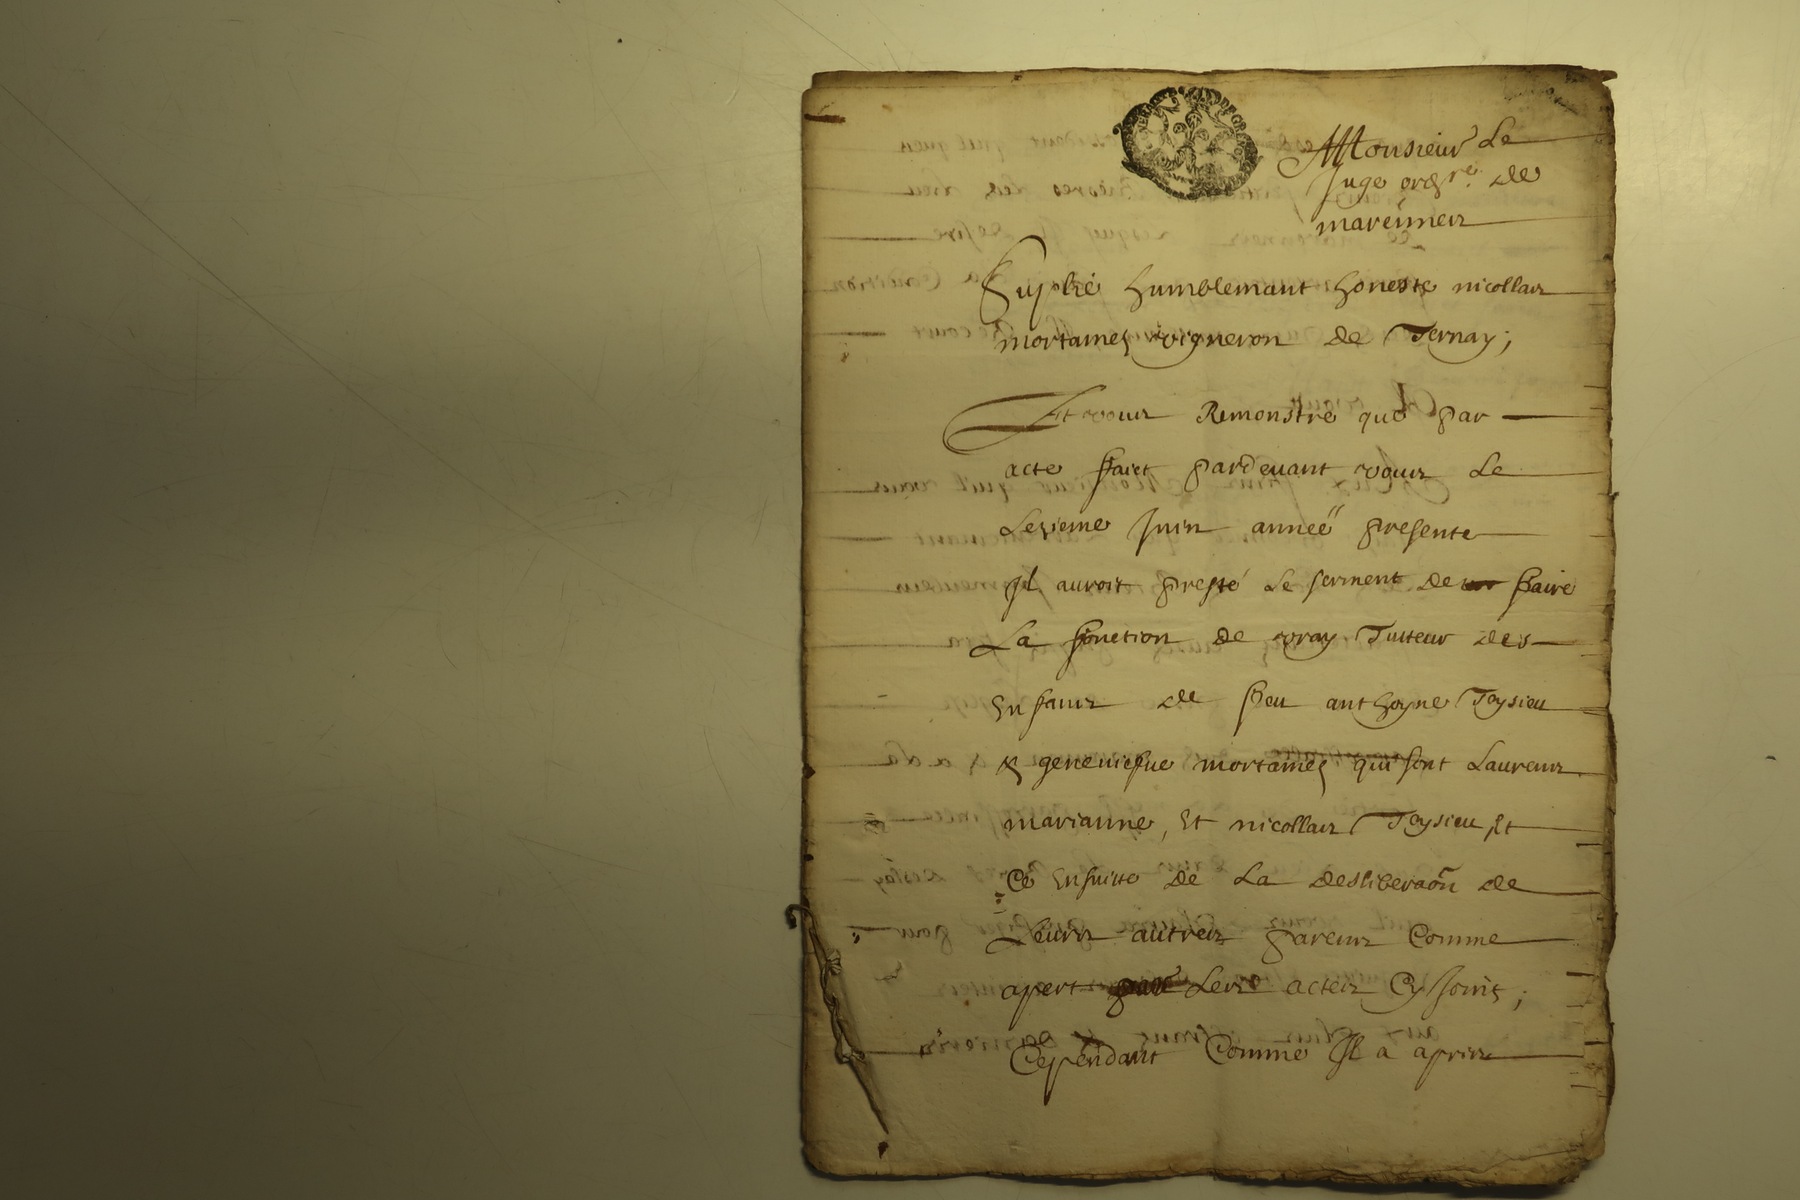 Monsieur Le
Juge ord.re de
marennes
Suplie humblemant honeste nicollas
mortames vigneron de Ternay;
Et vous Remonstre que par
acte faict pardevant vous Le
Lesieme Juin année presente
Il auroit presté Le serment de faire
La fonction de vray Tuteur des
Enfans de feu anthoyne Teysieu
& geneviefve mortames qui sont Laurens
marianne, Et nicollas Teysieu, Et
Ce Ensuitte de La desliberaõn de
Leurs autres parens Comme
apert Les actes Cy Joints;
Cependant Comme Il a apris